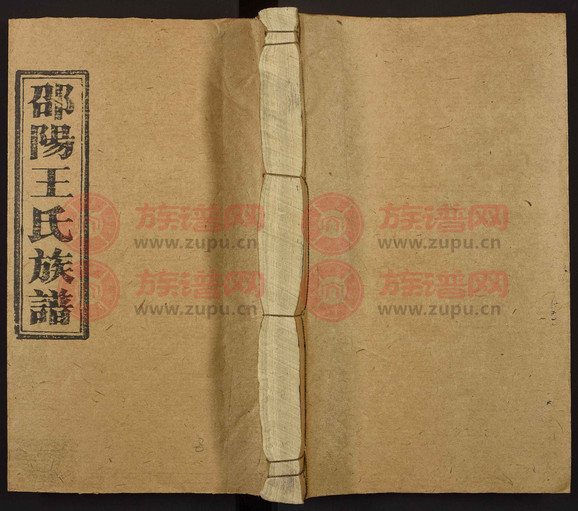 邵陽王氏族譜
族谱网
www.zupu.cn
族谱网
www.zupu.cn
族谱网
www.zupu.cn
族谱网
www.zupu.cn